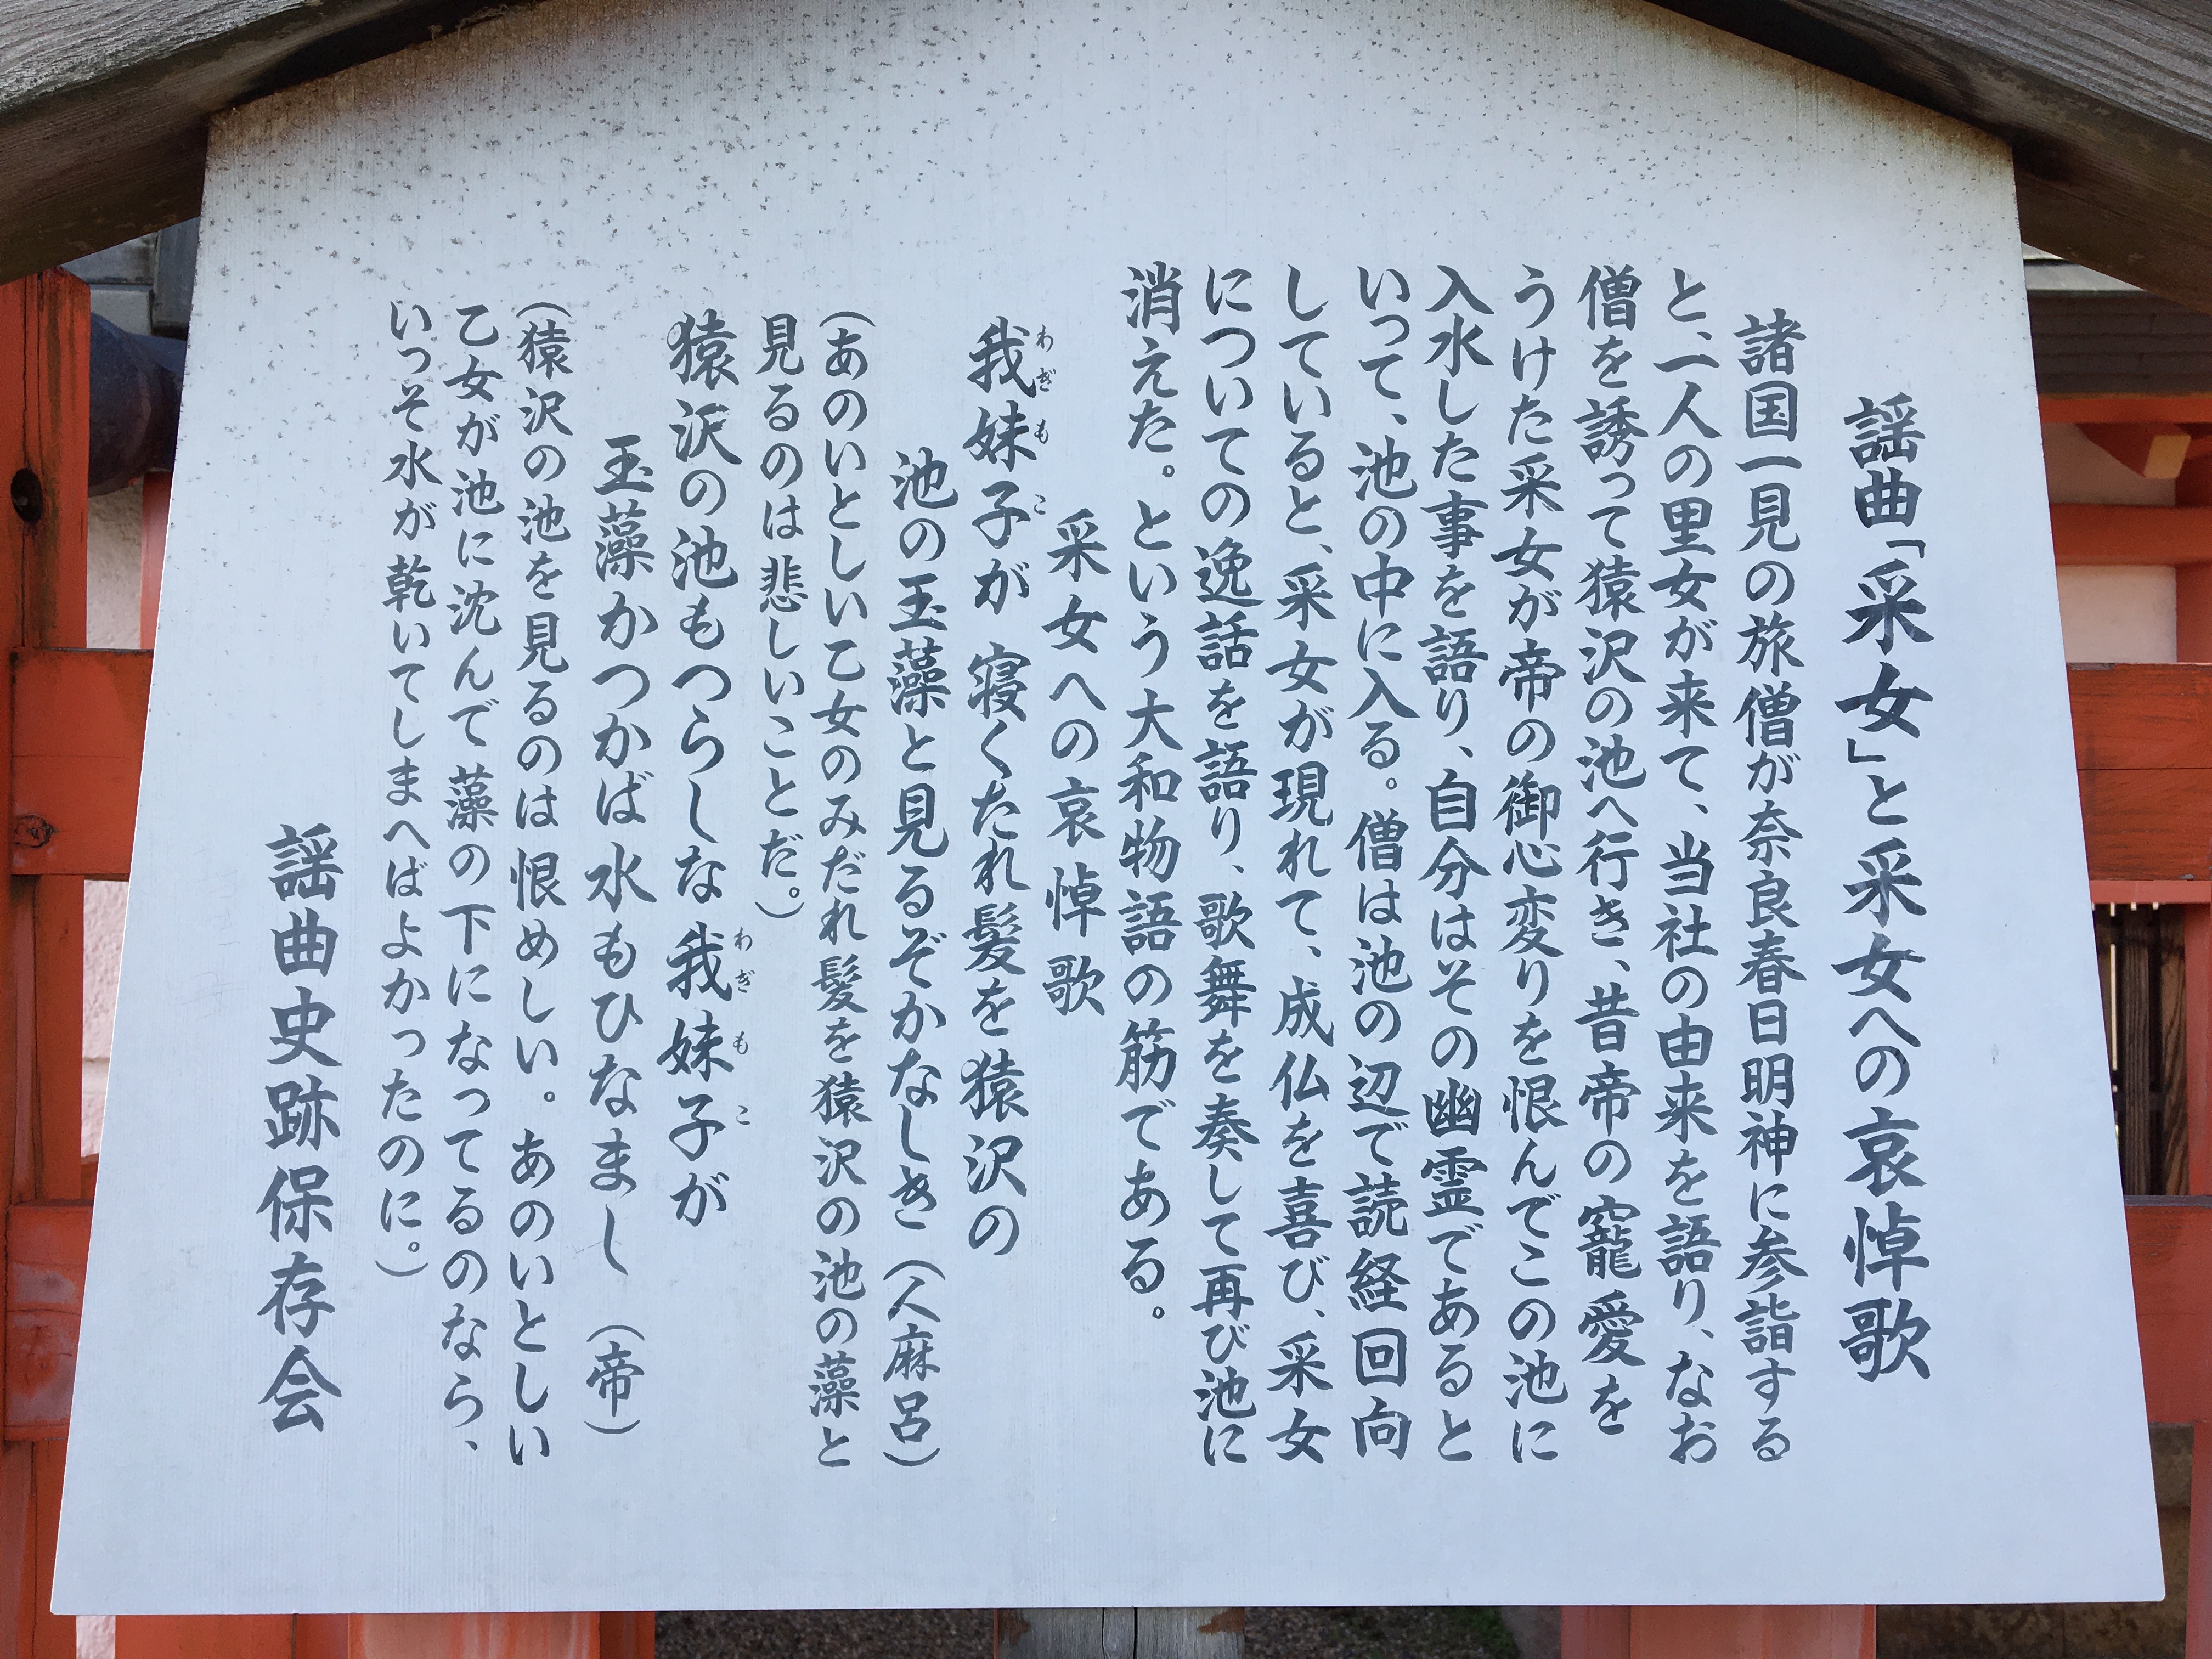 謡曲「采女」と采女への哀悼歌
諸国一見の旅僧が奈良春日明神に参詣する
と、一人の里女が来て、当社の由来を語り、なお
僧を誘って猿沢の池へ行き、昔帝の寵愛を
うけた采女が帝の御心変りを恨んでこの池に
入水した事を語り、自分はその幽霊であると
いって、池の中に入る。僧は池の辺で読経回向
していると、采女が現れて、成仏を喜び、采女
についての逸話を語り、歌舞を奏して再び池に
消えた。という大和物語の筋である。
采女への哀悼歌
我妹子が 寝くたれ髪を猿沢の
わぎもこ
池の玉藻と見るぞかなしき（人麻呂）
（あのいとしい乙女のみだれ髪を猿沢の池の藻と
見るのは悲しいことだ。）
猿沢の池もつらしな我妹子が
わぎもこ
玉藻かつかば水もひなまし（帝）
（猿沢の池を見るのは恨めしい。あのいとしい
乙女が池に沈んで藻の下になってるのなら、
いっそ水が乾いてしまへばよかったのに。）
謡曲史跡保存会